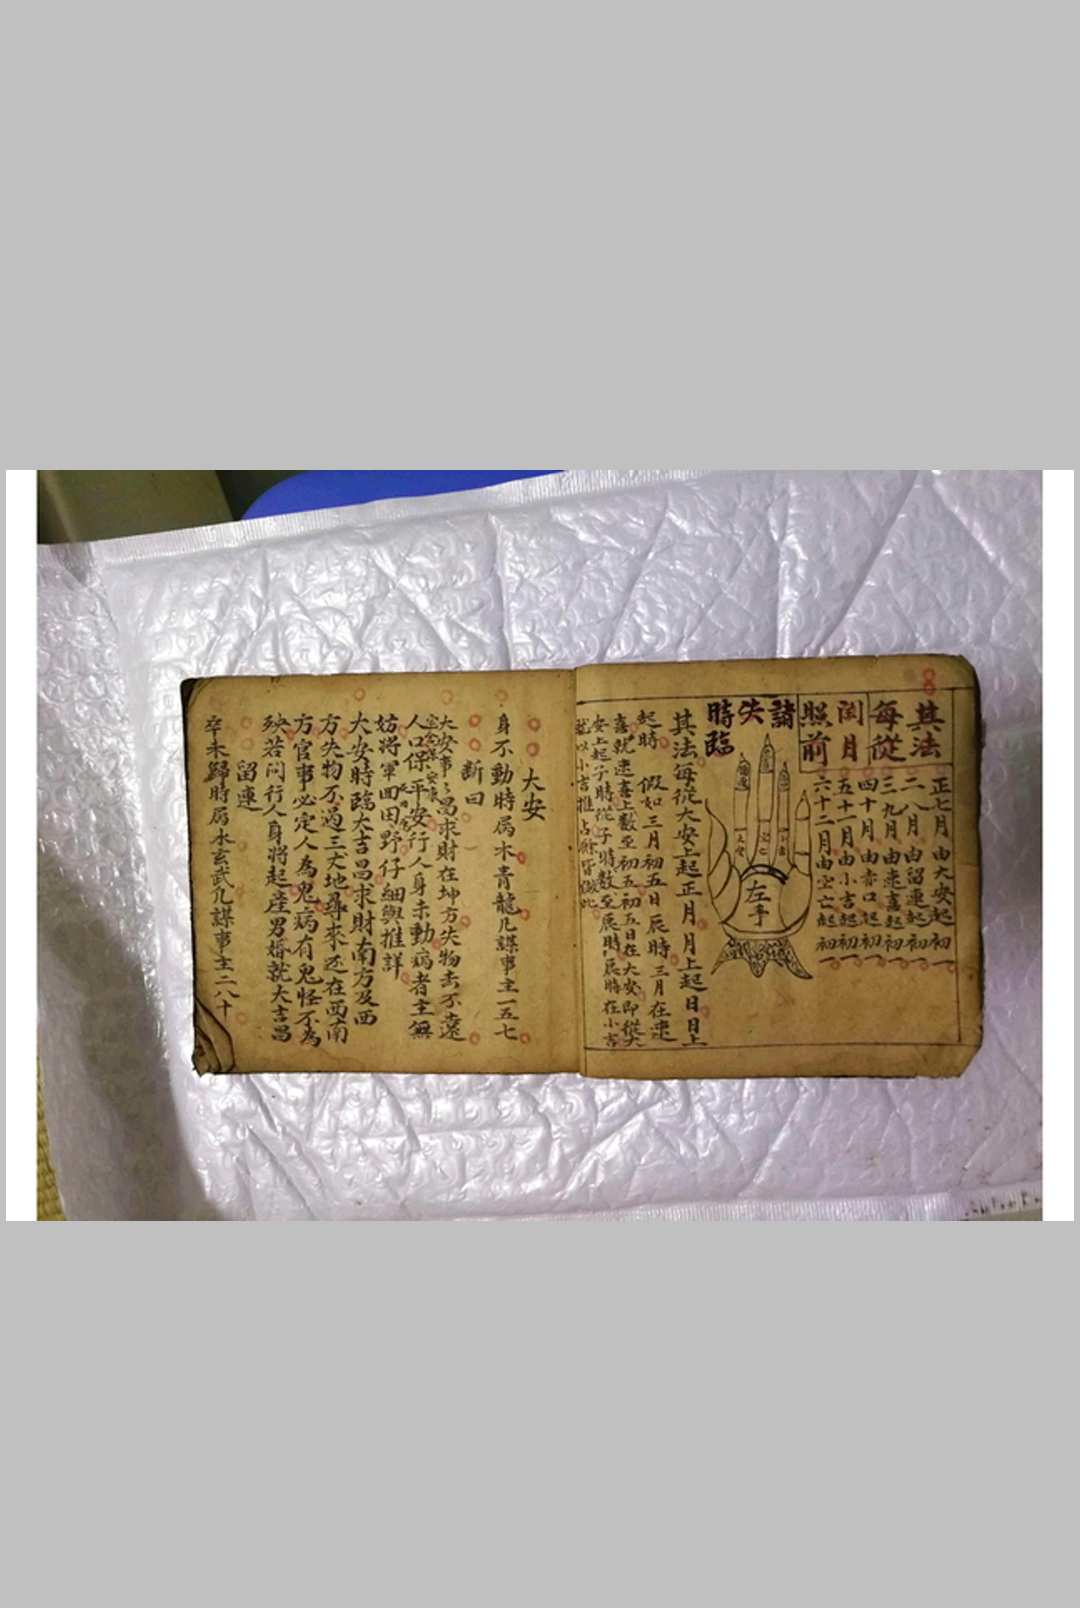 其法
每從
閏月
照前
正七月由大安起初一
二八月由留連起初一
三九月由速喜起初一
四十月由赤口起初一
五十一月由小吉起初一
六十二月由空亡起初一
諸
失
時臨
左手
其法每從大安上起正月月上起日日上
起時 假如三月初五日辰時三月在速
喜就速喜上数至初五初五日在大安即從大
安上起子時從子時数至辰時辰時在小吉
就以小吉推占餘皆倣此
大安
身不動時屬木青龍凡謀事主一五七
斷曰
大安事事昌求財在坤方失物去不遠
宅舍保安康
人口保平安行人身未動病者主無
妨將軍回田野仔細與推詳
大安時臨大吉昌求財南方及西
方失物不過三丈地尋來还在西南
方官事必定人為鬼病有鬼怪不為
殃若问行人身將起産男婚就大吉昌
留連
卒未歸時屬水玄武凡謀事主二八十